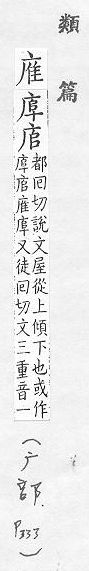 類篇
㢈
都回切說文屋從上傾下也或作
㢈 又徒回切文三重音一
(广部. P333)